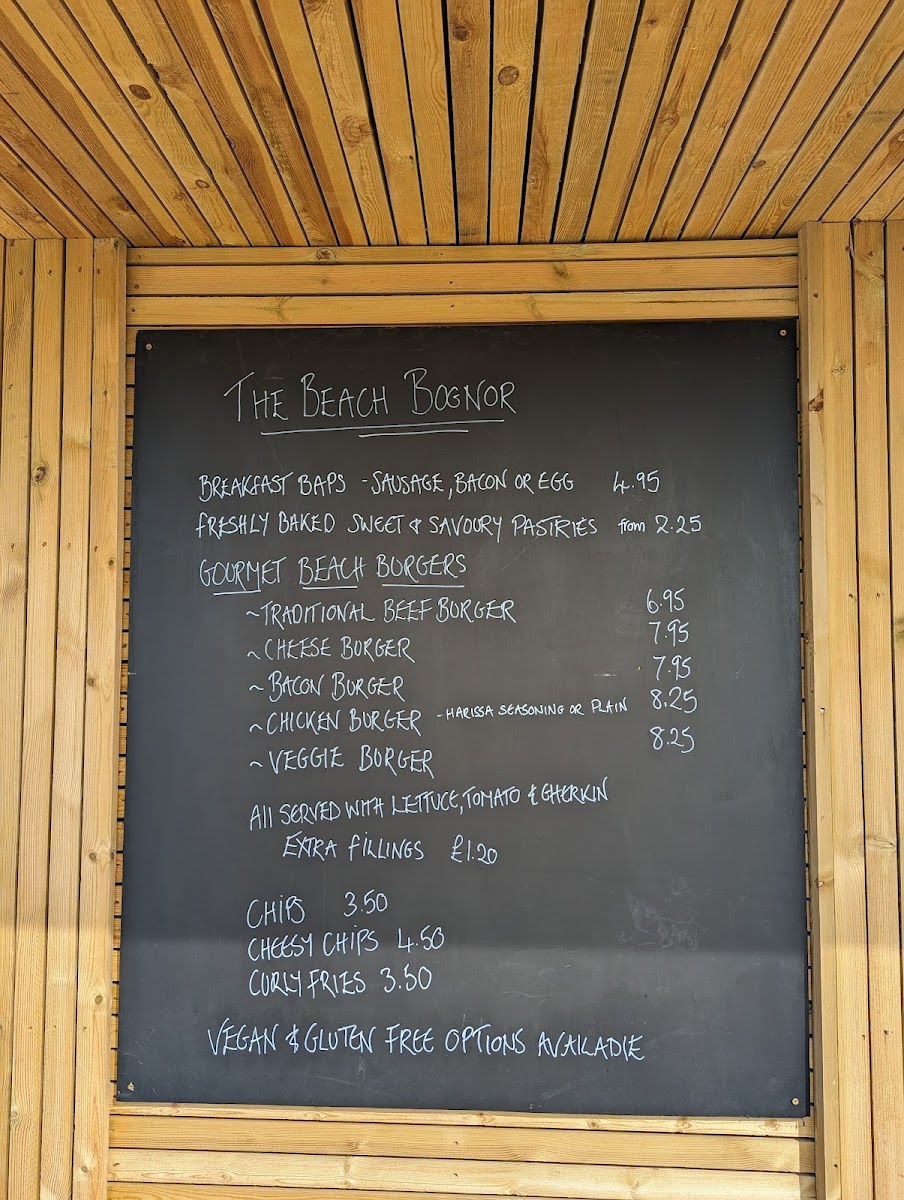 THE BEACH BOGNOR
BREAKFAST BAPS - SAUSAGE, BACON OR EGG 4.95
FRESHLY BAKED SWEET & SAVOURY PASTRIES from 2.25
GOURMET BEACH BURGERS
~ TRADITIONAL BEEF BURGER 6.95
~ CHEESE BURGER 7.95
~ BACON BURGER 7.95
~ CHICKEN BURGER - HARISSA SEASONING OR PLAIN 8.25
~ VEGGIE BURGER 8.25
All SERVED WITH LETTUCE, TOMATO & GHERKIN
EXTRA FILLINGS £1.20
CHIPS 3.50
CHEESY CHIPS 4.50
CURLY FRIES 3.50
VEGAN & GLUTEN FREE OPTIONS AVAILABLE